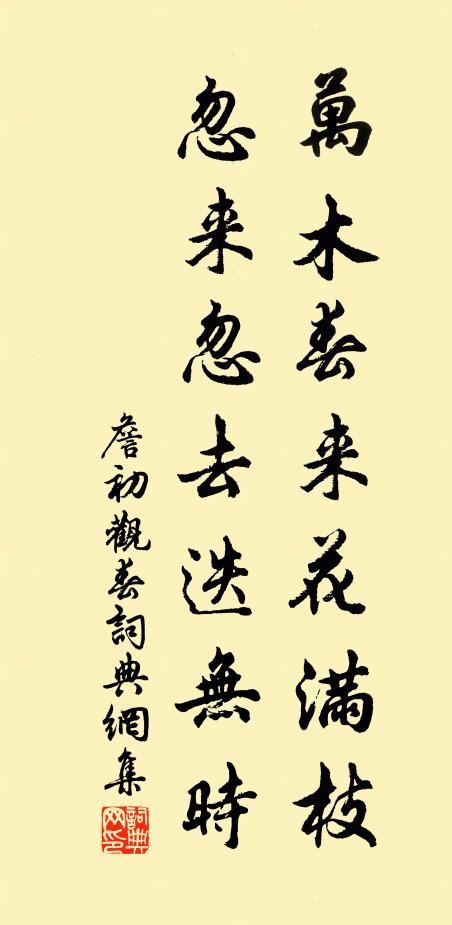 萬木春来花滿枝
忽来忽去迭無時
詹初觀春詞典網集
詞典
网印